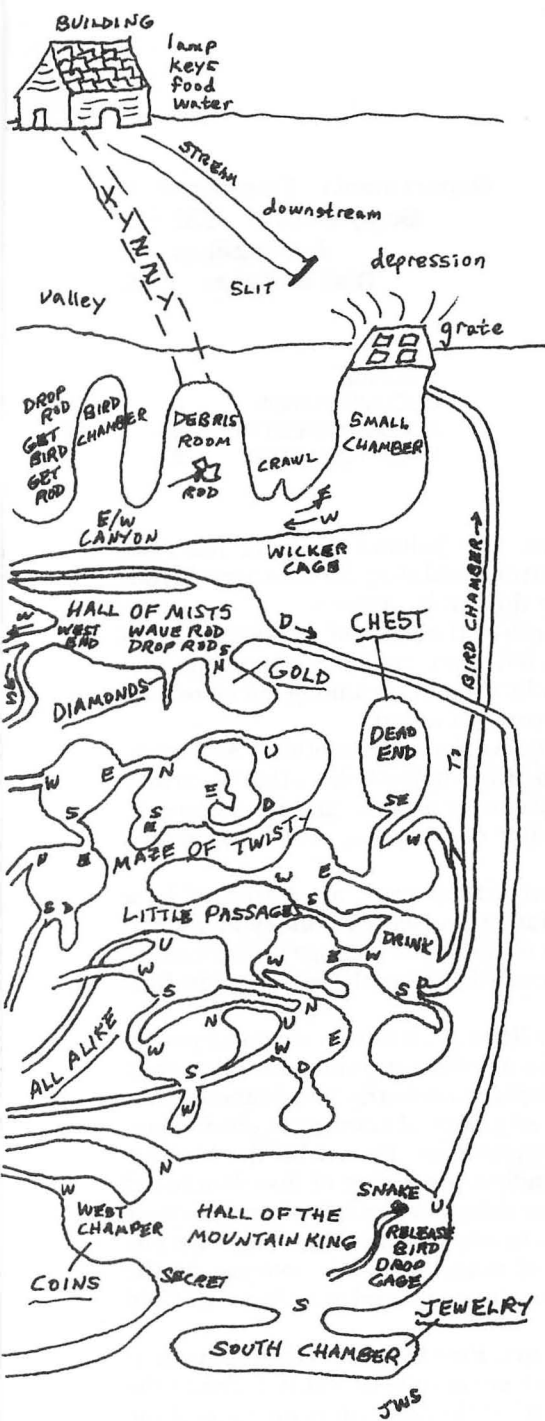 BUILDING
lamp
keys
food
water
STREAM
downstream
SLIT
XYZZY
valley
depression
grate
DROP
ROD
GET
BIRD
GET
ROD
BIRD
CHAMBER
DEBRIS
ROOM
ROD
CRAWL
SMALL
CHAMBER
E
W
E/W
CANYON
WICKER
CAGE
BIRD CHAMBER →
TO
W
HALL OF MISTS
WEST
END
WAVE ROD
DROP ROD
S
N
D
CHEST
GOLD
DIAMONDS
DEAD
END
SE
W
W
E
N
U
S
E
D
S
E
MAZE OF TWISTY
W
E
S
LITTLE PASSAGES
DRINK
W
E
W
S
D
S
D
U
W
S
N
N
U
W
E
W
S
D
W
ALL ALIKE
N
W
WEST
CHAMPER
HALL OF THE
MOUNTAIN KING
SNAKE
U
RELEASE
BIRD
DROP
CAGE
COINS
SECRET
S
JEWELRY
SOUTH CHAMBER
JWS